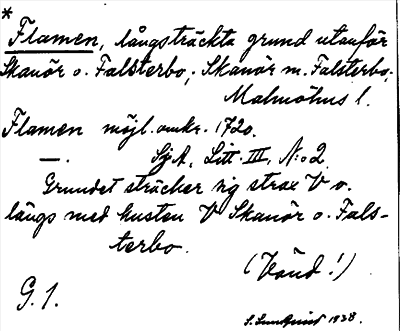 *
Flamen, långsträckta grund utanför
Skanör o. Falsterbo; Skanör m. Falsterbo;
Malmöhus l.
Flamen möjl. omkr. 1720.
—. SjA, Litt. III, N:o 2.
Grundet sträcker sig strax V o.
längs med kusten V Skanör o. Fals-
terbo.
(Vänd!)
G. 1.
S. Sundquist 1928.